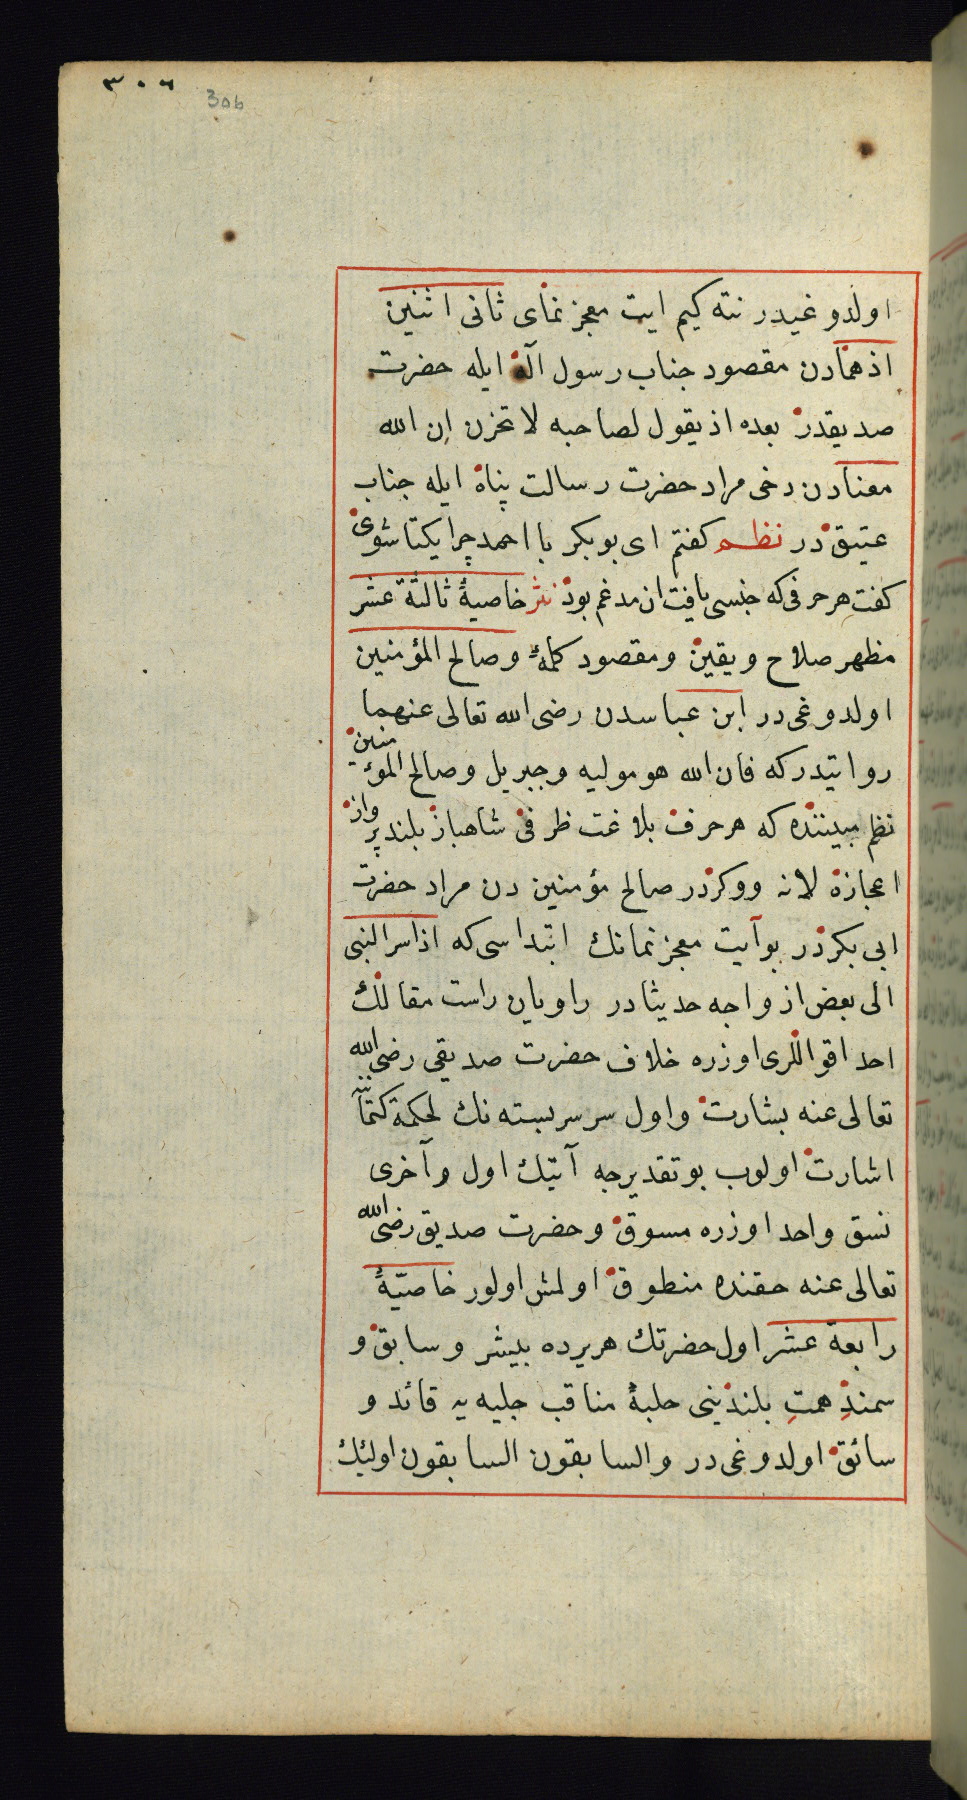 ٣٠٦
306
اولدوغیدر نته کیم ایت معجز نمای ثانی اثنین
اذ همادن مقصود جناب رسول آله ایله حضرت
صدیقدر بعده اذ یقول لصاحبه لا تحزن ان الله
معنادن دخی مراد حضرت رسالت پناه ایله جناب
عتیق در نظم کفتم ای بوبکر با احمد چرا یکتا شوی
کفت هر حرفی که جنسی یافت ان مدغم بود نثر خاصیهٔ ثالثة عشر
مظهر صلاح ویقین ومقصود کلمهٔ وصالح المؤمنین
اولدوغی در ابن عباسدن رضی الله تعالی عنهما
روایتدرکه فان الله هو مولیه وجبریل وصالح المؤمنین
نظم مبیننده که هر حرف بلاغت ظرفی شاهباز بلند پرواز
اعجازه لانه ووکردر صالح مؤمنین دن مراد حضرت
ابی بکردر بو آیت معجز نمانك ابتداسی که اذ اسر النبی
الی بعض ازواجه حدیثا در راویان راست مقالك
احد اقواللری اوزره خلاف حضرت صدیقی رضی الله
تعالی عنه بشارت واول سر سربسته نك لحکمة کتمانه
اشارت اولوب بو تقدیرجه آیتك اول وآخری
نسق واحد اوزره مسوق وحضرت صدیق رضی الله
تعالی عنه حقنده منطوق اولمش اولور خاصیّهٔ
رابعة عشر اول حضرتك هریرده بیشر وسابق و
سمندِ همتِ بلندینی حلبهٔ مناقب جلیه یه قائد و
سائق اولدوغی در والسابقون السابقون اولئك